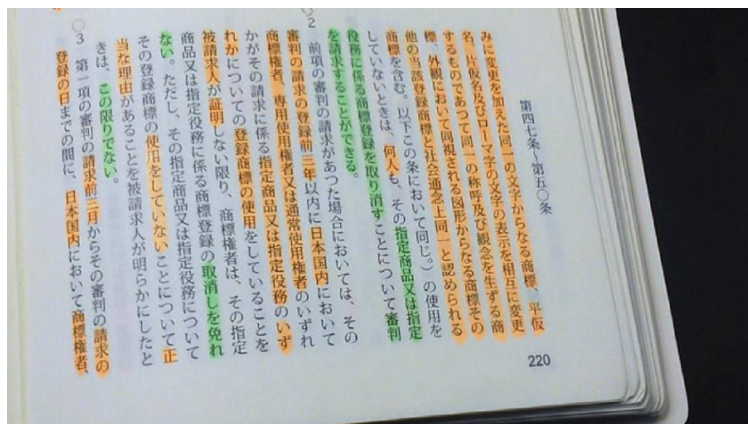 第四七条～第五〇条
みに変更を加えた同一の文字からなる商標、平仮
名、片仮名及びローマ字の文字の表示を相互に変更
するものであつて同一の称呼及び観念を生ずる商
標、外観において同視される図形からなる商標その
他の当該登録商標と社会通念上同一と認められる
商標を含む。以下この条において同じ。）の使用を
していないときは、何人も、その指定商品又は指定
役務に係る商標登録を取り消すことについて審判
を請求することができる。
2 前項の審判の請求があつた場合においては、その
審判の請求の登録前三年以内に日本国内において
商標権者、専用使用権者又は通常使用権者のいずれ
かがその請求に係る指定商品又は指定役務のいず
れかについての登録商標の使用をしていることを
被請求人が証明しない限り、商標権者は、その指定
商品又は指定役務に係る商標登録の取消しを免れ
ない。ただし、その指定商品又は指定役務について
その登録商標の使用をしていないことについて正
当な理由があることを被請求人が明らかにしたと
きは、この限りでない。
○3 第一項の審判の請求前三月からその審判の請求の
登録の日までの間に、日本国内において商標権者、
220